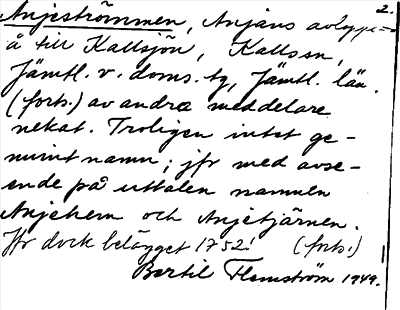 2.
Anjeströmmen, Anjans avlopps-
å till Kallsjön, Kallsn,
Jämtl. v. doms. tg, Jämtl. län.
(forts.) av andra meddelare
nekat. Troligen intet ge-
nuint namn; jfr med avse-
ende på uttalen namnen
Anjehem och Anjetjärnen.
Jfr dock belägget 1752! (forts.)
Bertil Flemström 1949.